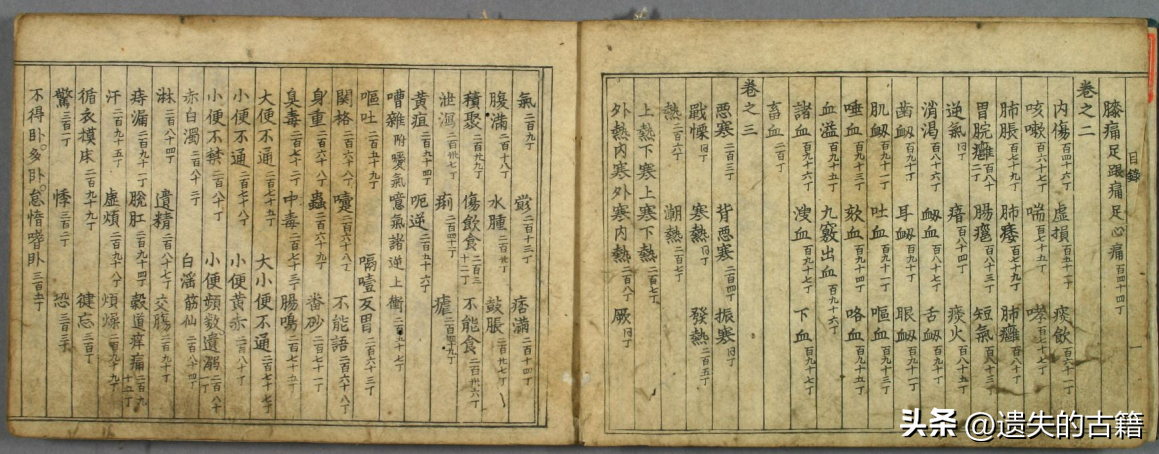 膝痛足跟痛足心痛百四十四丁
目錄 一
卷之二
內傷百四十六丁 虛損百五十丁 痰飲百六十一丁
咳嗽百六十七丁 喘百七十五丁 哮百七十七丁
肺脹百七十九丁 肺痿百七十九丁 肺癰百八十一丁
胃脘癰百八十二丁 腸癰百八十三丁 短氣百八十三丁
逆氣 瘖百八十四丁 痰火百八十五丁
消渴百八十六丁 衂血百八十七丁 舌衂
齒衂百九十丁 耳衂 眼衂百九十一丁
肌衂百九十一丁 吐血 嘔血百九十三丁
唾血百九十三丁 欬血百九十四丁 咯血
血溢百九十五丁 九竅出血百九十六丁
諸血 溲血百九十七丁 下血
畜血二百一丁
卷之三
惡寒二百三丁 背惡寒二百四丁 振寒同丁
戰慄同丁 寒熱同丁 發熱二百五丁
熱二百六丁 潮熱二百七丁
上熱下寒上寒下熱二百七丁
外熱內寒外寒內熱二百八丁 厥同丁
氣二百九丁 鬱二百十三丁 痞滿二百十四丁
腹滿二百十八丁 水腫 鼓脹
積聚 傷飲食 不能食
泄瀉 痢二百四十二丁 瘧
黃疸 呃逆
嘈雜附噯氣噫氣諸逆上衝二百五十七丁
嘔吐二百五十九丁 嗝噎反胃二百六十三丁
關格二百六十八丁 嚏二百六十八丁 不能語二百六十八丁
身重二百六十九丁 蟲二百六十九丁 畨砂二百七十一丁
臭毒 中毒二百七十三丁 腸鳴二百七十五丁
大便不通二百七十五丁 大小便不通二百七十七丁
小便不通二百七十八丁 小便黃赤二百八十丁
小便不禁 小便頻數遺溺
赤白濁 白淫筋仙二百八十四丁
淋二百八十四丁 遺精二百八十七丁 交腸二百九十丁
痔漏二百九十一丁 脫肛二百九十四丁 穀道痒痛
汗二百九十五丁 虛煩二百九十八丁 煩燥二百九十九丁
循衣摸床二百九十九丁 健忘三百丁
驚三百一丁 悸三百二丁 恐三百三丁
不得卧多卧怠惰嗜卧三百三丁
头条@遗失的古籍